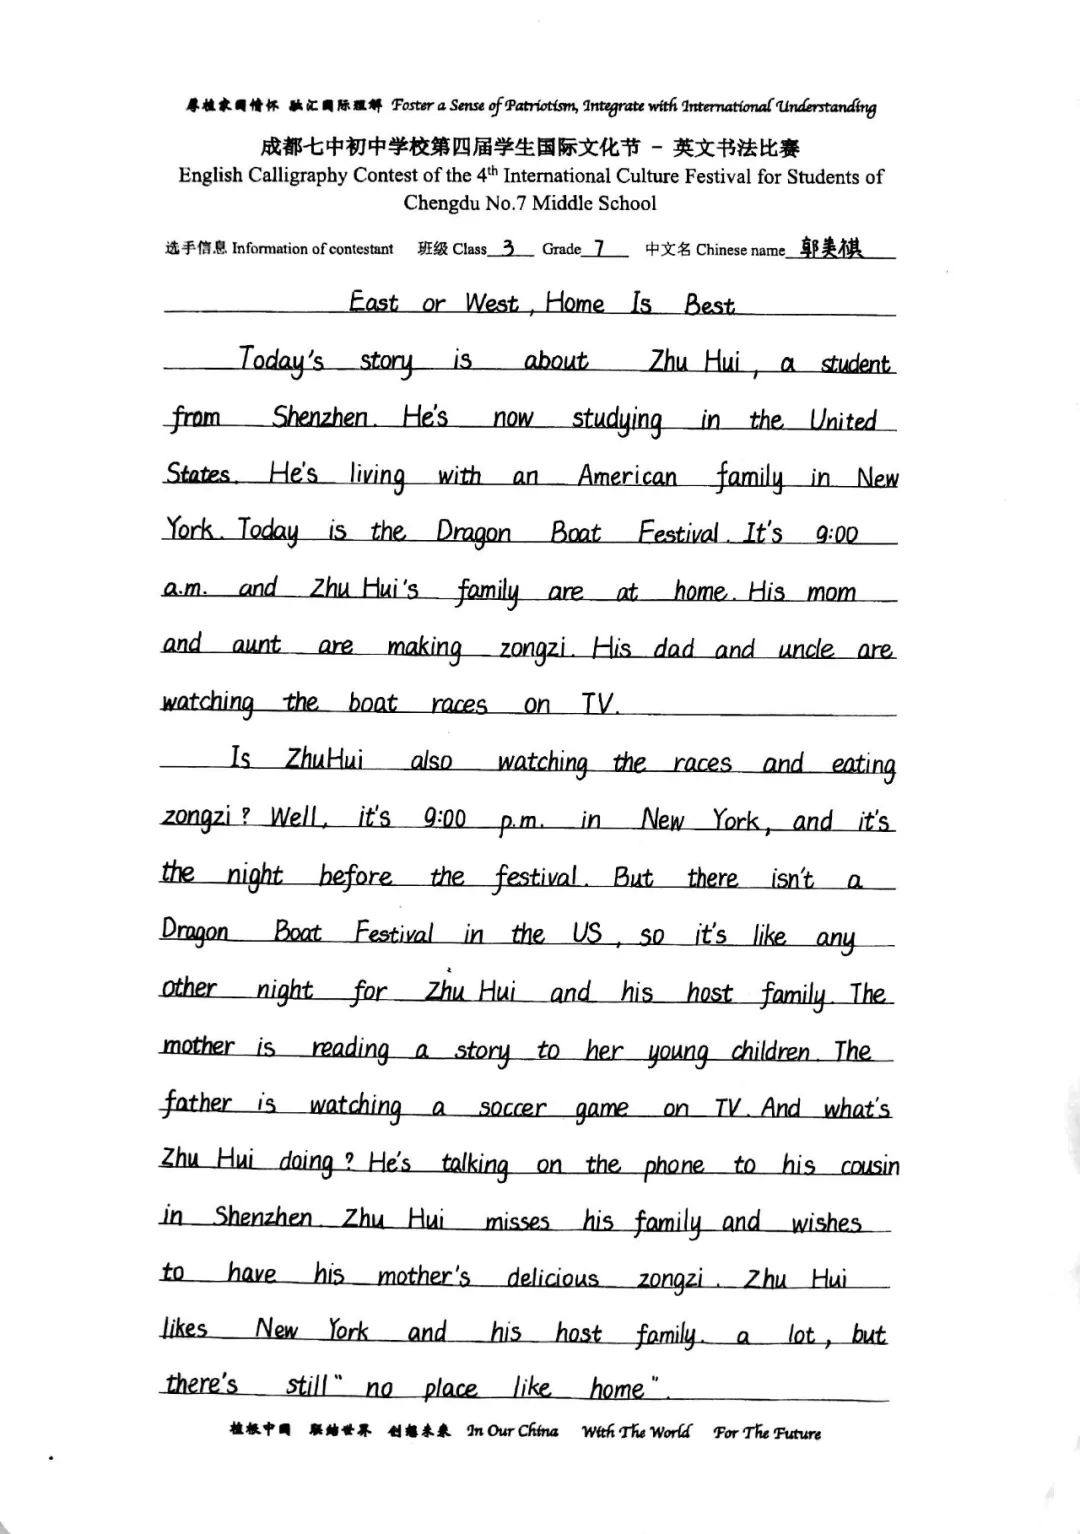 厚植家国情怀 融汇国际理解 Foster a Sense of Patriotism, Integrate with International Understanding
成都七中初中学校第四届学生国际文化节 - 英文书法比赛
English Calligraphy Contest of the 4th International Culture Festival for Students of
Chengdu No.7 Middle School
选手信息 Information of contestant 班级 Class 3 Grade 7 中文名 Chinese name 郭美祺
East or West, Home Is Best
Today's story is about Zhu Hui, a student
from Shenzhen. He's now studying in the United
States. He's living with an American family in New
York. Today is the Dragon Boat Festival. It's 9:00
a.m. and Zhu Hui's family are at home. His mom
and aunt are making zongzi. His dad and uncle are
watching the boat races on TV.
Is ZhuHui also watching the races and eating
zongzi? Well, it's 9:00 p.m. in New York, and it's
the night before the festival. But there isn't a
Dragon Boat Festival in the US, so it's like any
other night for Zhu Hui and his host family. The
mother is reading a story to her young children. The
father is watching a soccer game on TV. And what's
Zhu Hui doing? He's talking on the phone to his cousin
in Shenzhen. Zhu Hui misses his family and wishes
to have his mother's delicious zongzi. Zhu Hui
likes New York and his host family. a lot, but
there's still "no place like home".
植根中国 联结世界 创想未来 In Our China With The World For The Future